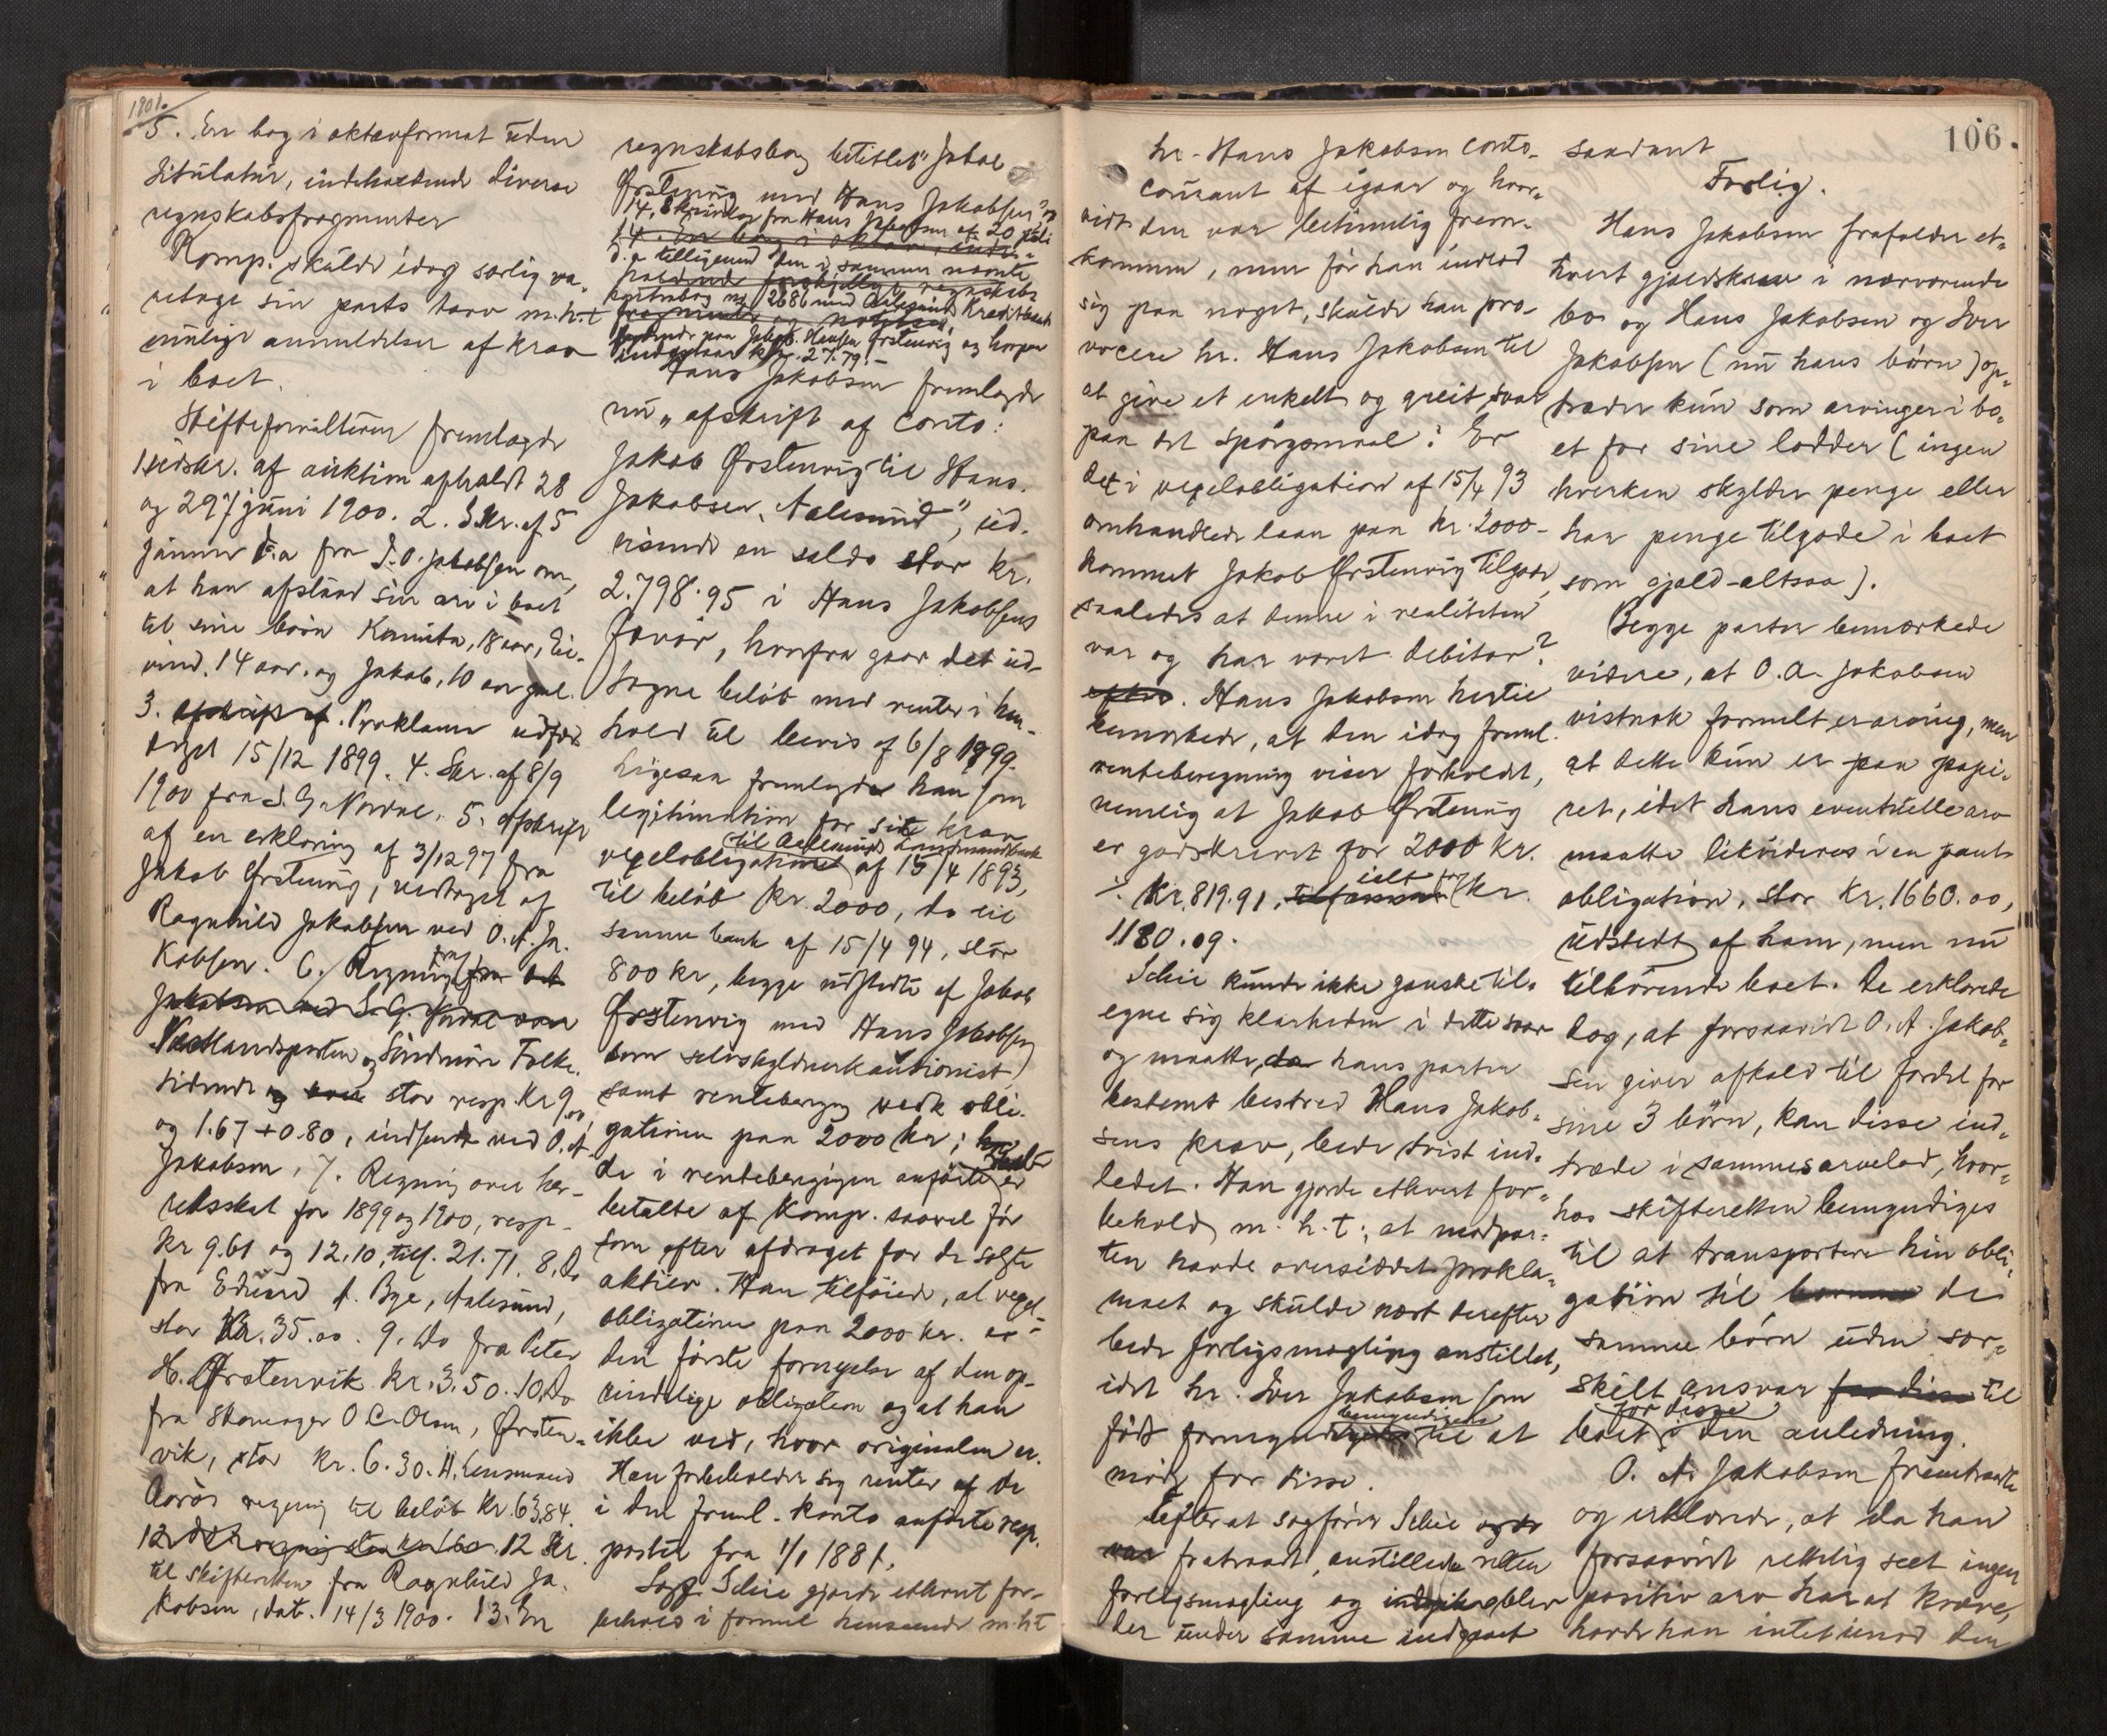 1901.
5. En bog i oktavformat uden
titulatur, indeholdende diverse
regnskabsfragmenter
Komp. skulde idag særlig va-
retage sin parts tarv m.h.t
mulige anmeldelser af krav
i boet.
Skifteforvalteren fremlagde
1 udskr. af auktion afholdt 28
og 29 juni 1900. 2. Skr. af 5
januar d.a fra O.A. Jakobsen om,
at han afstaar sin arv i boet
til sine børn Kamita, 18 aar, Ei-
vind, 14 aar, og Jakob, 10 aar gml.
3. afskrift af Proklama udfær-
diget 15/12 1899. 4. Skr. af 8/9
1900 fra S. G. Nordal. 5. Afskrift
af en erklæring af 3/12 97 fra
Jakob Ørstenvig, vedtaget af
Ragnhild Jakobsen ved O. A. Ja-
kobsen. 6. Regning fra
Jakobsen ved S. G.
Vestlandsposten og Søndmøre Folke-
tidende og stor resp. kr 9.00
og 1.67 + 0.80, indsendt ved O. A
Jakobsen, 7. Regning over her-
redsskat for 1899 og 1900, resp.
kr 9.61 og 12.10, tils. 21.71. 8. Do
fra Edvard A. Bye, Aalesund,
stor Kr. 35.00. 9. Do fra Peter
H. Ørstenvik kr. 3.50. 10. Do
fra skomager O C. Olsen, Ørsten-
vik, stor kr. 6.30. 11. Lensmand
Aarøs regning til beløb kr. 63.84.
12 Skr.
til skifteretten fra Ragnhild Ja-
kobsen, dat. 14/3 1900. 13. En
regnskabsbog betitlet "Jakob
Ørstenvig med Hans Jakobsen" og
14, Skrivelse fra Hans Jakobsen af 20 juli
14. En bog i oktav, inde-
d.a tilligemed den i samme nævnte
holdende forskjellige regnskabs
kontrabog no 2686 med Aalesunds Kreditbank
fragmenter og notitser,
lydende paa Jakob Hansen Ørstenvig og hvorpaa
indestaar kr. 27.79.
Hans Jakobsen fremlagde
nu „afskrift af Conto:
Jakob Ørstenvig til Hans
Jakobsen, Aalesund", ud-
visende en saldo stor kr.
2.798.95 i Hans Jakobsens
favør, hvorfra gaar det ud-
tagne beløb med renter i hen-
hold til bevis af 6/8 1899.
Ligesaa fremlagde han som
legitimation for sit krav
til Aalesunds Landmandsbank
vexelobligationer af 15/4 1893,
til beløb kr. 2000, do til
samme bank af 15/4 94, stor
800 kr, begge udstedte af Jakob
Ørstenvig med Hans Jakobsen
som selvskyldnerkautionist,
samt renteberegng vedk obli-
gationen paa 2000 kr;
de i renteberegngen anførte er
betalte af Komp. saavel før
som efter afdraget for de solgte
aktier. Han tilføiede, at vexel-
obligationen paa 2000 kr. er
den første fornyelse af den op-
rindelige obligation og at han
ikke ved, hvor originalen er.
Han forbeholder sig renter af de
i den freml. konto anførte resp.
poster fra 1/1 1881.
Sagf. Schie gjorde ethvert for-
behold i formel henseende m.h.t
106.
hr. Hans Jakobsens conto-
courant af igaar og hvor-
vidt den var betimelig frem-
kommen, men før han indlod
sig paa noget, skulde han pro-
vocere hr. Hans Jakobsen til
at give et enkelt og greit svar
paa det spørgsmaal: Er
det i vexelobligation af 15/4 93
omhandlede laan paa kr. 2000
kommet Jakob Ørstenvig tilgode,
saaledes at denne i realiteten
var og har været debitor?
Hans Jakobsen hertil
bemærkede, at den idag freml.
renteberegning viser forholdet,
nemlig at Jakob Ørstenvig
er godskrevet for 2000 kr.
÷ Kr. 819.91, ialt for kr.
1180.09.
Schie kunde ikke ganske til-
egne sig klarheden i dette svar
og maatte, da hans parter
bestemt bestred Hans Jakob-
sens krav, bede tvist ind-
ledet. Han gjorde ethvert for-
behold m. h. t., at modpar-
ten havde oversiddet prokla-
maet og skulde næst derefter
bede forligsmægling anstillet,
idet hr. Iver Jakobsen som
født formynder bemyndiges til at
møde for disse.
Efterat sagfører Schie
var fratraadt, anstillede retten
forligsmægling og blev
der under samme indgaaet
saadant
Forlig.
Hans Jakobsen frafalder et-
hvert gjældskrav i nærværende
bo og Hans Jakobsen og Iver
Jakobsen (nu hans børn) op-
træder kun som arvinger i bo-
et for sine lodder (ingen
hverken skylder penge eller
har penge tilgode i boet
som gjæld-altsaa).
Begge parter bemærkede
videre, at O. A. Jakobsen
vistnok formelt er arving, men
at dette kun er paa papi-
ret, idet hans eventuelle arv
maatte likvideres i en pant-
obligation, stor Kr. 1660.00,
udstedt af ham, men nu
tilhørende boet. De erklærede
dog, at forsaavidt O. A. Jakob-
sen giver afkald til fordel for
sine 3 børn, kan disse ind-
træde i sammes arvelod, hvor-
hos skifteretten bemyndiges
til at transportere hin obli-
gation til de
samme børn uden sær-
skilt ansvar for disse til
boet i den anledning.
O. A. Jakobsen fremtraadte
og erklærede, at da han
forsaavidt rettelig seet ingen
positiv arv har at kræve,
havde han intet imod den